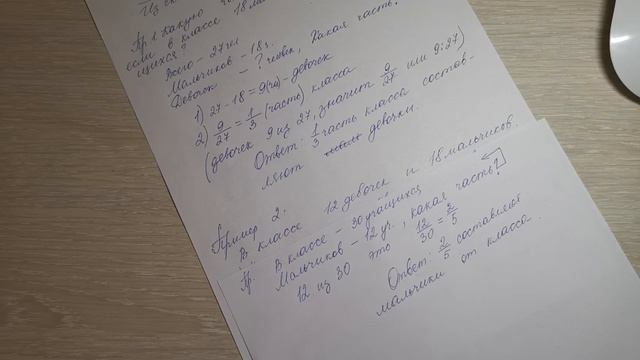 Пр 1. Какую
если в классе 18 мал
щихся?
Всего - 27 чел
Мальчиков - 18 ч.
Девочек - ? человек, Какая часть?
1) 27 - 18 = 9 (ч) - девочек
2) 9/27 = 1/3 (часть) класса
(девочек 9 из 27, значит 9/27 или 9:27)
Ответ: 1/3 часть класса состав-
ляют девочки.
Пример 2.
В классе 12 девочек и 18 мальчиков.
Пр. В классе - 30 учащихся
Мальчиков - 12 уч., какая часть?
12 из 30 это 12/30 = 2/5
Ответ: 2/5 составляют
мальчики от класса.